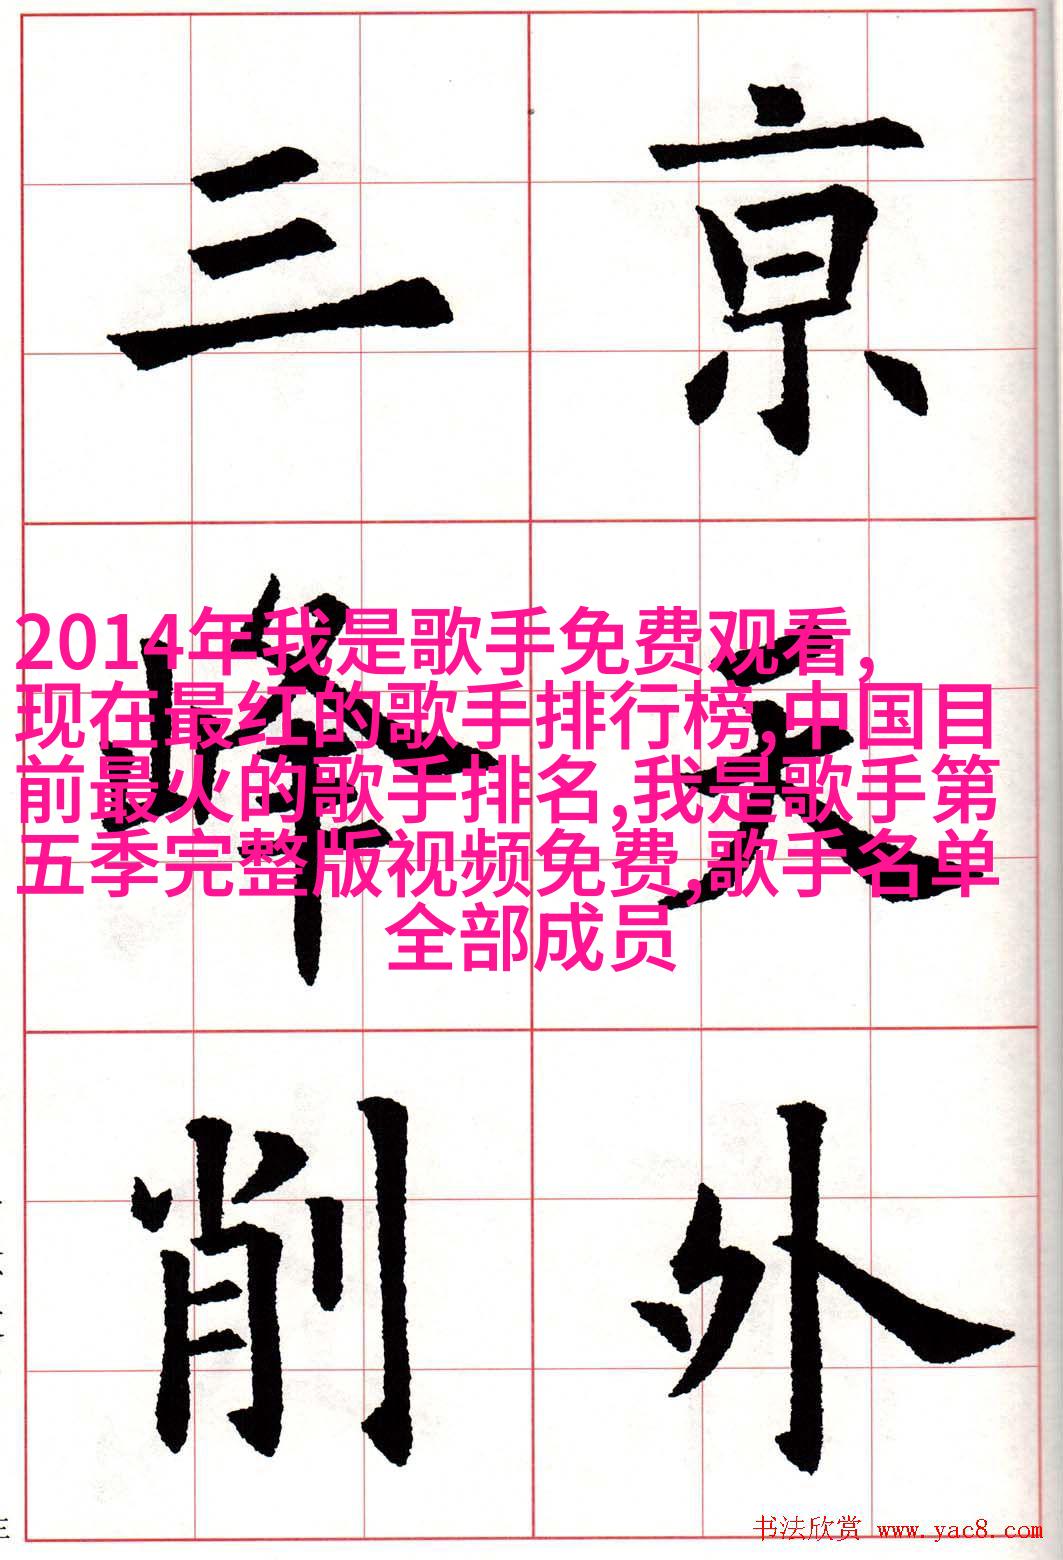 亰天外
三峰削
2014年我是歌手免费观看,
现在最红的歌手排行榜,中国目
前最火的歌手排名,我是歌手第
五季完整版视频免费,歌手名单
全部成员
书法欣赏 www.yac8.com